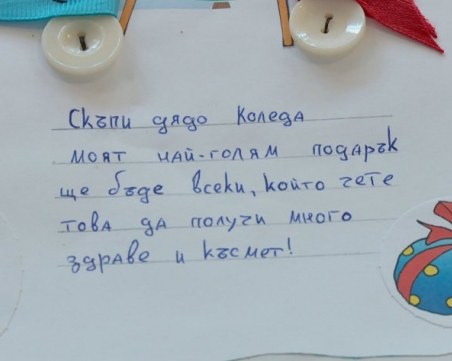 Скъпи дядо Коледа
моят най-голям подарък
ще бъде всеки, който чете
това да получи много
здраве и късмет!